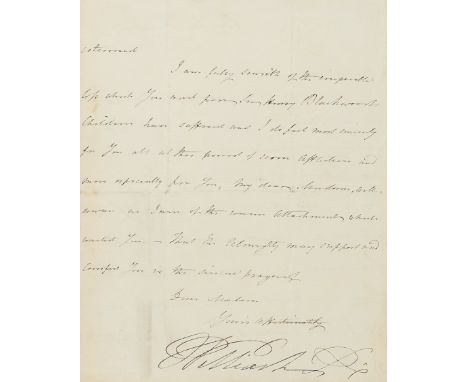 esteemed
I am fully sensible of the irreparable
loss which You and poor Sir Henry Blackwood's
Children have suffered and I do feel most sincerely
for You all at this period of severe affliction and
more especially for You, My dear Madam,
as I am of the warm attachment which
united You – That the Almighty may support and
Comfort You is the sincere prayer of
Dear Madam
Yours affectionately
William R